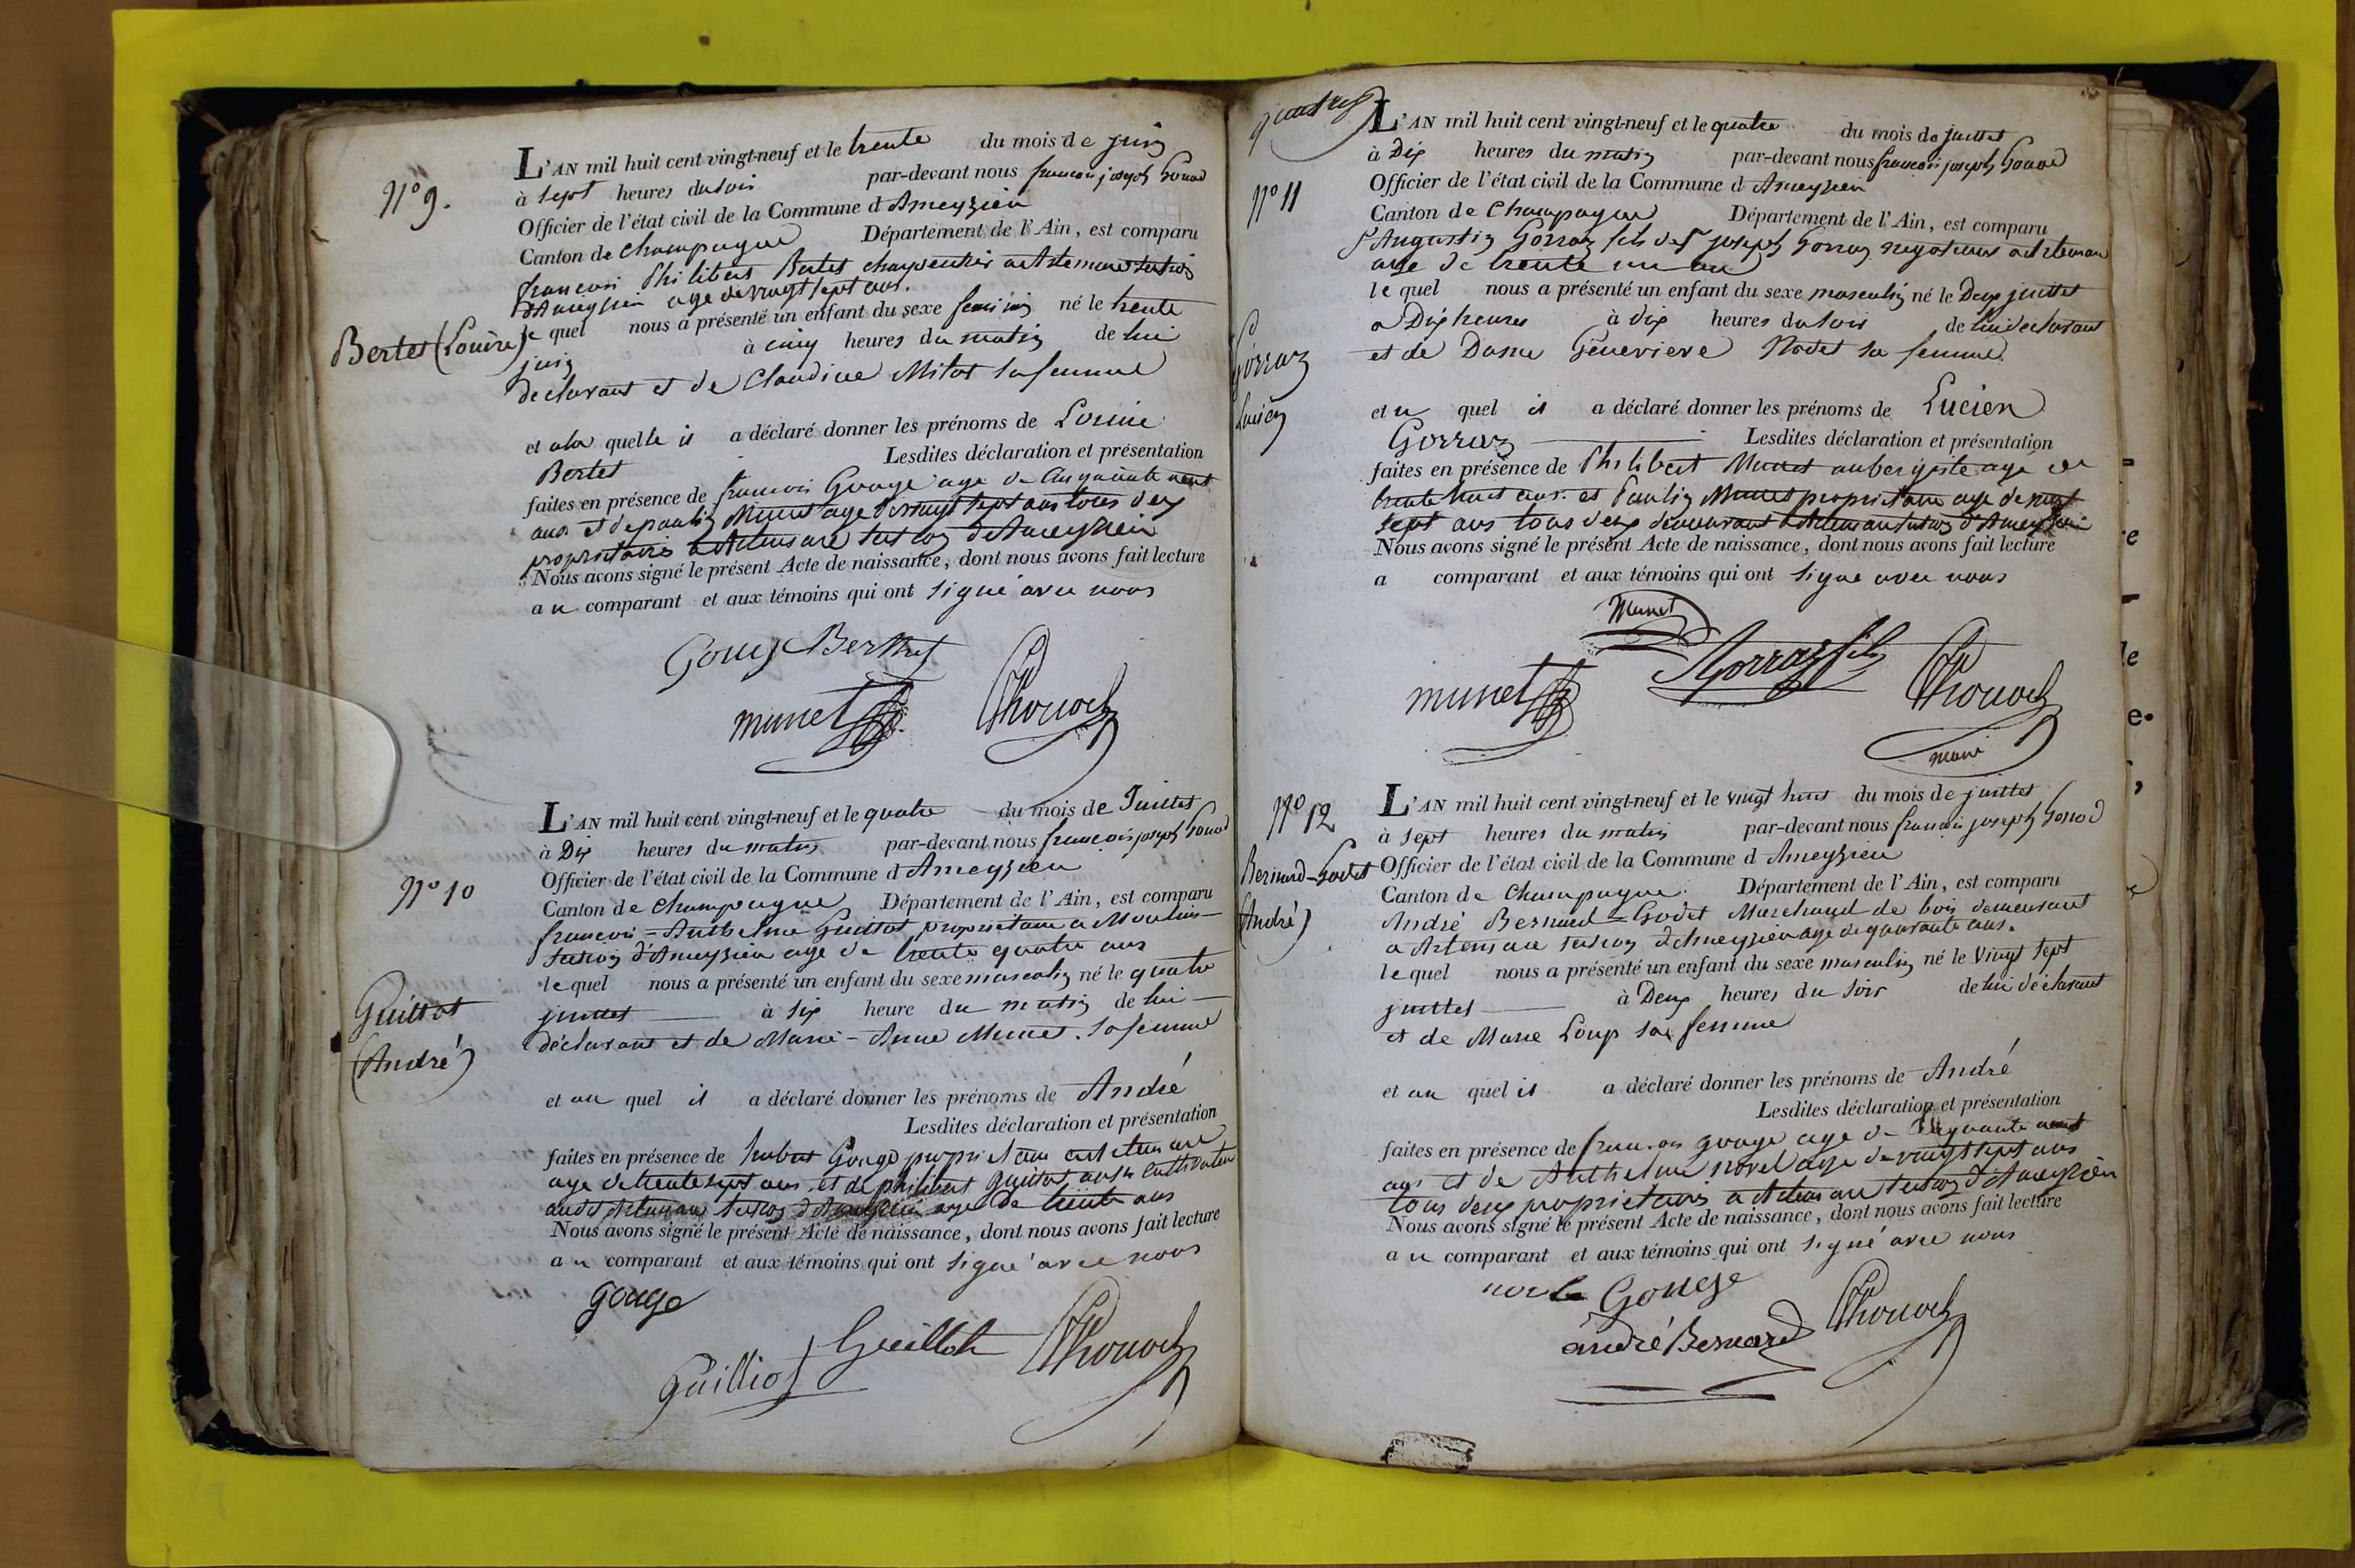 N° 9.
L'AN mil huit cent vingt-neuf et le trente du mois de juin
à sept heures du soir par-devant nous françois joseph Gonod
Officier de l'état civil de la Commune d Ameyzieu
Canton de Champagne Département de l'Ain, est comparu
françois Philibert Bertet charpentier a Artemare
d'Ameyzieu age de vingt sept ans.
Bertet (Louise)
le quel nous a présenté un enfant du sexe feminin né le trente
juin à cinq heures du matin de lui
declarant et de Claudine Mitot sa femme
et a la quelle il a déclaré donner les prénoms de Louise
Bertet Lesdites déclaration et présentation
faites en présence de francois Gouge age de cinquante neuf
ans et de paulin Munet age de vingt sept ans tous deux
proprietaires a Artemare section d'Ameyzieu
Nous avons signé le présent Acte de naissance, dont nous avons fait lecture
au comparant et aux témoins qui ont signé avec nous
Gouge Berthet
munet
N° 10
L'AN mil huit cent vingt-neuf et le quatre du mois de Juillet
à Dix heures du matin par-devant nous françois joseph Gonod
Officier de l'état civil de la Commune d Ameyzieu
Canton de Champagne Département de l'Ain, est comparu
françois = Anthelme Guillot proprietaire a Moulin
section d'Ameyzieu age de trente quatre ans
le quel nous a présenté un enfant du sexe masculin né le quatre
Guillot
(André)
juillet à six heure du matin de lui
déclarant et de Marie - Anne Munet sa femme
et au quel il a déclaré donner les prénoms de André
Lesdites déclaration et présentation
faites en présence de hubert Gouge proprietaire a artemare
age de trente sept ans et de philibert Guillot aussi cultivateur
audit Artemare section d'Ameyzieu age de trente ans
Nous avons signé le présent Acte de naissance, dont nous avons fait lecture
au comparant et aux témoins qui ont signé avec nous
gouge
Guilliot Guillot
N° 11
L'AN mil huit cent vingt-neuf et le quatre du mois de juillet
à Dix heures du matin par-devant nous françois joseph Gonod
Officier de l'état civil de la Commune d Ameyzieu
Canton de Champagne Département de l'Ain, est comparu
Sr Augustin Gorraz fils de Sr joseph Gorraz negotiant a Artemare
age de trente un an
le quel nous a présenté un enfant du sexe masculin né le Deux juillet
a Dix heures à dix heures du soir de lui declarant
et de Dame Genevieve Nodet sa femme.
Gorraz
Lucien
et au quel il a déclaré donner les prénoms de Lucien
Gorraz Lesdites déclaration et présentation
faites en présence de Philibert Munet aubergiste age de
trente huit ans. et Paulin Munet proprietaire age de vingt
sept ans tous deux demeurant a Artemare section d'Ameyzieu
Nous avons signé le présent Acte de naissance, dont nous avons fait lecture
a comparant et aux témoins qui ont signé avec nous
Munet
munet Gorraz fils
N° 12
L'AN mil huit cent vingt-neuf et le vingt huit du mois de juillet
à sept heures du matin par-devant nous francois joseph Gonod
Bernard-Godet
(André)
Officier de l'état civil de la Commune d Ameyzieu
Canton de Champagne Département de l'Ain, est comparu
André Bernard = Godet Marchand de bois demeurant
a Artemare section d'Ameyzieu age de quarante ans.
le quel nous a présenté un enfant du sexe masculin né le Vingt sept
juillet à Deux heures du soir de lui déclarant
et de Marie Loup sa femme
et au quel il a déclaré donner les prénoms de André
Lesdites déclaration et présentation
faites en présence de francois gouge age de cinquante neuf
ans et de Anthelme novel age de vingt sept ans
tous deux proprietaires a Artemare section d'Ameyzieu
Nous avons signé le présent Acte de naissance, dont nous avons fait lecture
au comparant et aux témoins qui ont signé avec nous
Gouge
andré Bernard